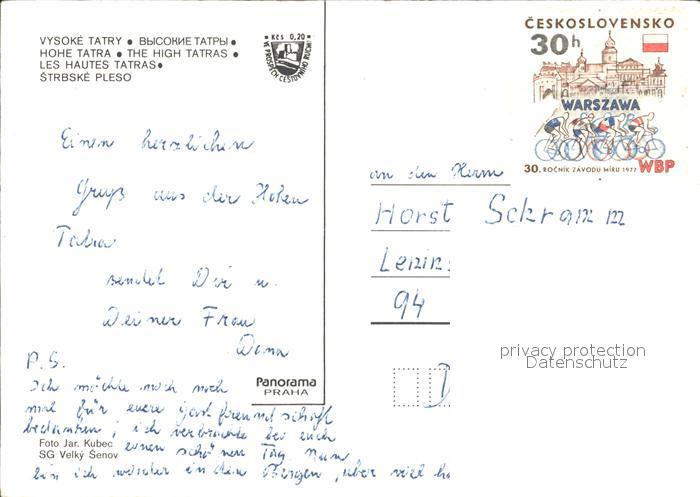 VYSOKÉ TATRY • ВЫСОКИЕ ТАТРЫ •
HOHE TATRA • THE HIGH TATRAS •
LES HAUTES TATRAS •
ŠTRBSKÉ PLESO
Kčs 0,20
VE PROSPĚCH CESTOVNÍHO RUCHU
ČESKOSLOVENSKO
30h
WARSZAWA
30. ROČNÍK ZÁVODU MÍRU 1977 WBP
Einen herzlichen
Gruß aus der Hohen
Tatra
sendet Dir u.
Deiner Frau
Dana
an den Herrn
Horst Schramm
Lenin
94
D
privacy protection
Datenschutz
P.S.
Ich möchte mich noch
mal für euere gastfreundschaft
bedanken, ich verbrachte bei euch
einen schönen Tag. Nun
bin ich wieder in den Bergen, aber viel
Panorama
PRAHA
Foto Jar. Kubec
SG Velký Šenov